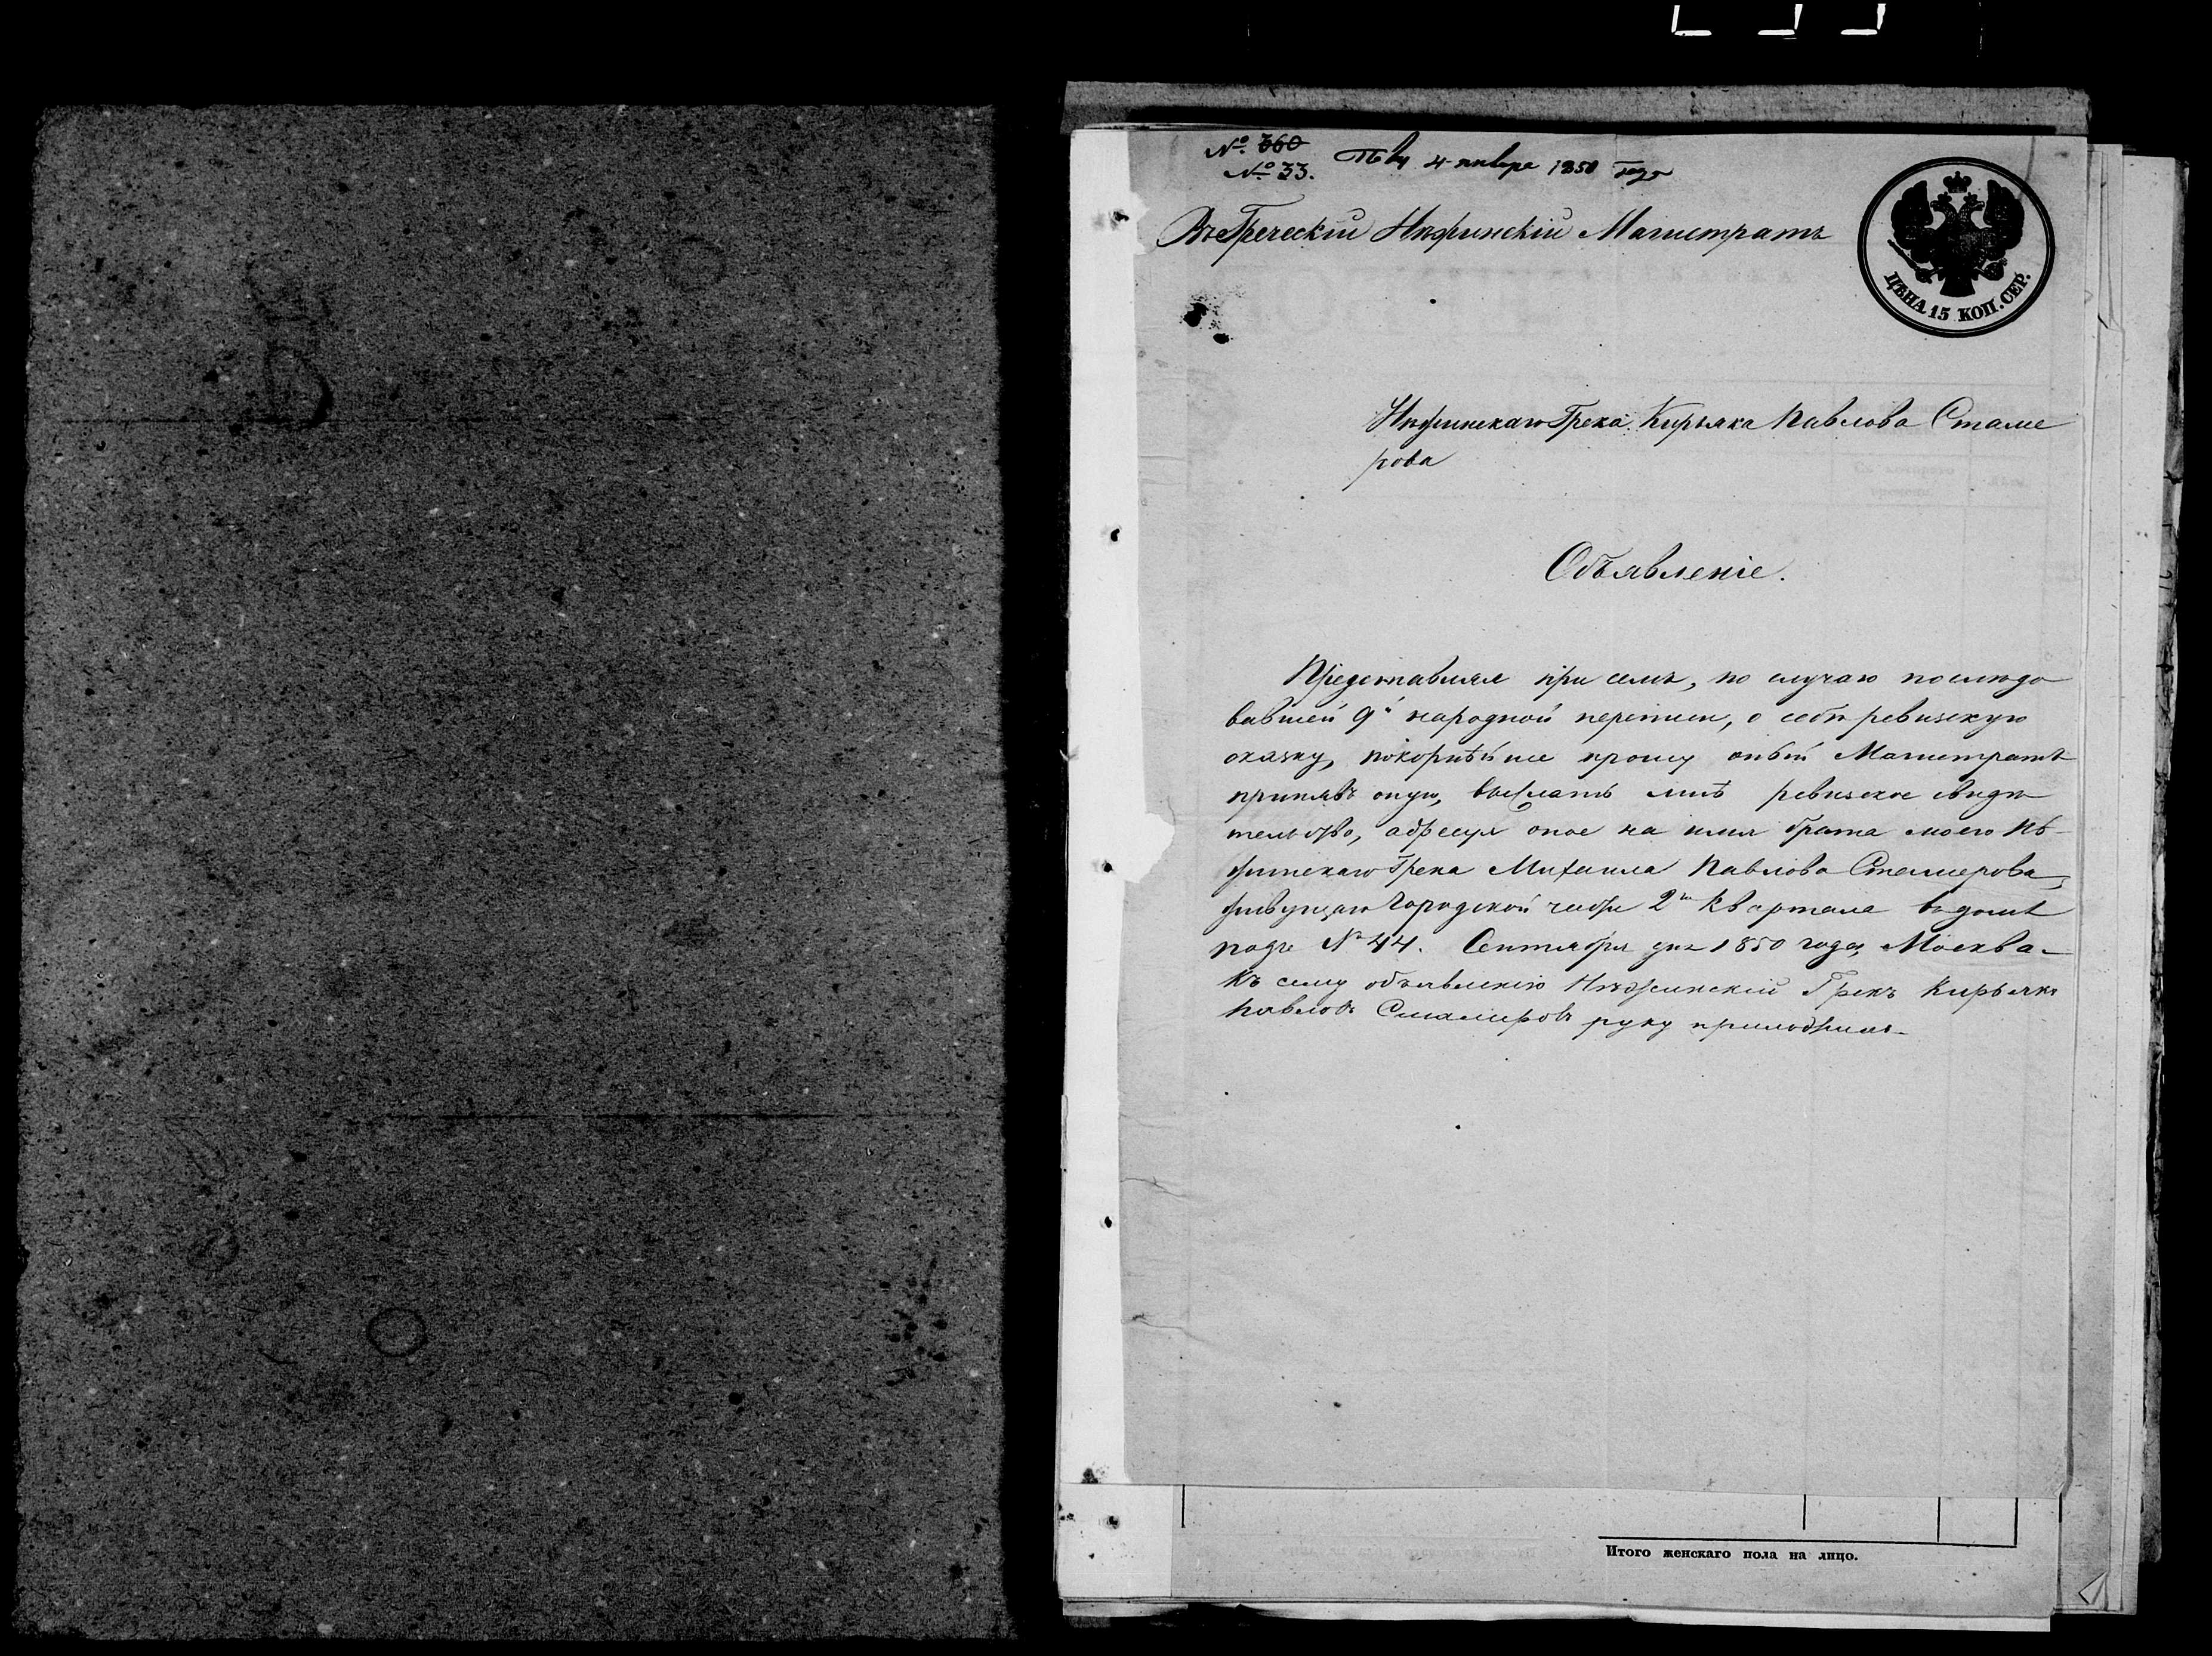 № 360
№ 33. 4 января 1850 года
Въ Греческій Нѣжинскій Магистратъ
ЦѢНА 15 КОП. СЕР.
Нѣжинскаго Грека Кирьяка Павлова Стаме
рова
Объявленіе.
Представляя при семъ, по случаю послѣдо
вавшей 9й народной переписи, о себѣ ревизскую
сказку, покорнѣйше прошу оный Магистратъ
принявъ оную, выслать мнѣ ревизское свидѣ
тельство, адресуя оное на имя брата моего Нѣ-
жинскаго Грека Михаила Павлова Стамерова,
живущаго Городской части 2го квартала въ домѣ
подъ № 44. Сентября дня 1850 года, Москва-
Къ сему объявленію Нѣжинскій Грекъ Кирьякъ
Павловъ Стамеровъ руку приложилъ-
Итого женскаго пола на лицо.